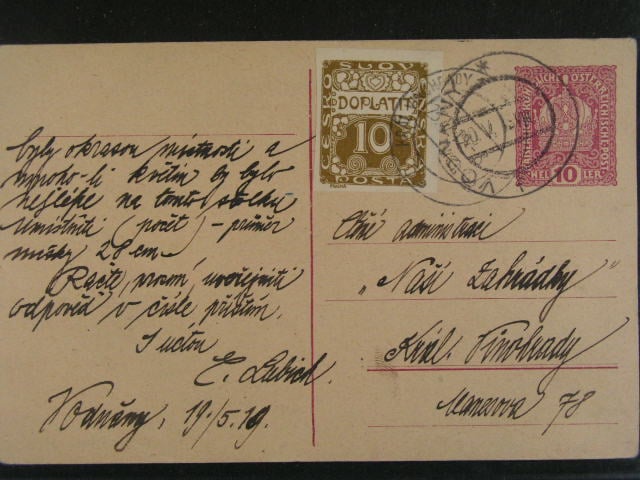 byly okrasou místnosti a
mnoho-li květin by bylo
nejlépe na tomto stolku
umístniti (počet) - průměr
misky 28 cm.
Račte, prosím, uveřejniti
odpověď v čísle příštím.
S úctou
Vodňany, 19./5. 19.
ČESKO SLOV
DOPLATIT
10
POŠTA
VODŇANY
20 V
10
HELLER
Ctěné administraci
„Naší Zahrádky"
Král. Vinohrady
Manesova 78